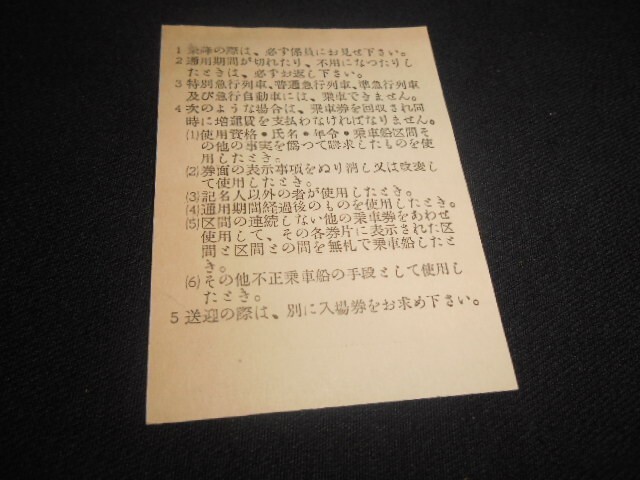 1 乗降の際は、必ず係員にお見せ下さい。
2 通用期間が切れたり、不用になつたりし
たときは、必ずお返し下さい。
3 特別急行列車、普通急行列車、準急行列車
及び急行自動車には、乗車できません。
4 次のような場合は、乗車券を回収され同
時に増運賃を支払わなければなりません。
(1)使用資格・氏名・年令・乗車船区間そ
の他の事実を偽つて購求したものを使
用したとき。
(2)券面の表示事項をぬり消し又は改変し
て使用したとき。
(3)記名人以外の者が使用したとき。
(4)通用期間経過後のものを使用したとき。
(5)区間の連続しない他の乗車券をあわせ
使用して、その各券片に表示された区
間と区間との間を無札で乗車船したと
き。
(6)その他不正乗車船の手段として使用し
たとき。
5 送迎の際は、別に入場券をお求め下さい。